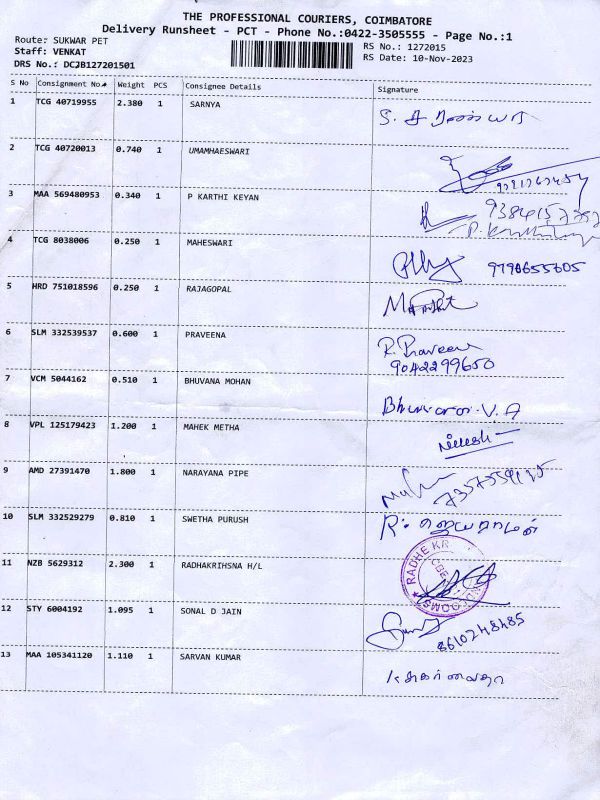 THE PROFESSIONAL COURIERS, COIMBATORE
Delivery Runsheet - PCT - Phone No.:0422-3505555 - Page No.:1
Route: SUKWAR PET
RS No.: 1272015
Staff: VENKAT
RS Date: 10-Nov-2023
DRS No.: DCJB127201501
S No Consignment No. Weight PCS Consignee Details Signature
1 TCG 40719955 2.380 1 SARNYA
2 TCG 40720013 0.740 1 UMAMHAESWARI
3 MAA 569480953 0.340 1 P KARTHI KEYAN
4 TCG 8038006 0.250 1 MAHESWARI 9790655605
5 HRD 751018596 0.250 1 RAJAGOPAL
6 SLM 332539537 0.600 1 PRAVEENA R. Praveena
9042299650
7 VCM 5044162 0.510 1 BHUVANA MOHAN
8 VPL 125179423 1.200 1 MAHEK METHA
9 AMD 27391470 1.800 1 NARAYANA PIPE
10 SLM 332529279 0.810 1 SWETHA PURUSH R. ஜெயராமன்
11 NZB 5629312 2.300 1 RADHAKRIHSNA H/L RADHE KR
12 STY 6004192 1.095 1 SONAL D JAIN 8610248485
13 MAA 105341120 1.110 1 SARVAN KUMAR